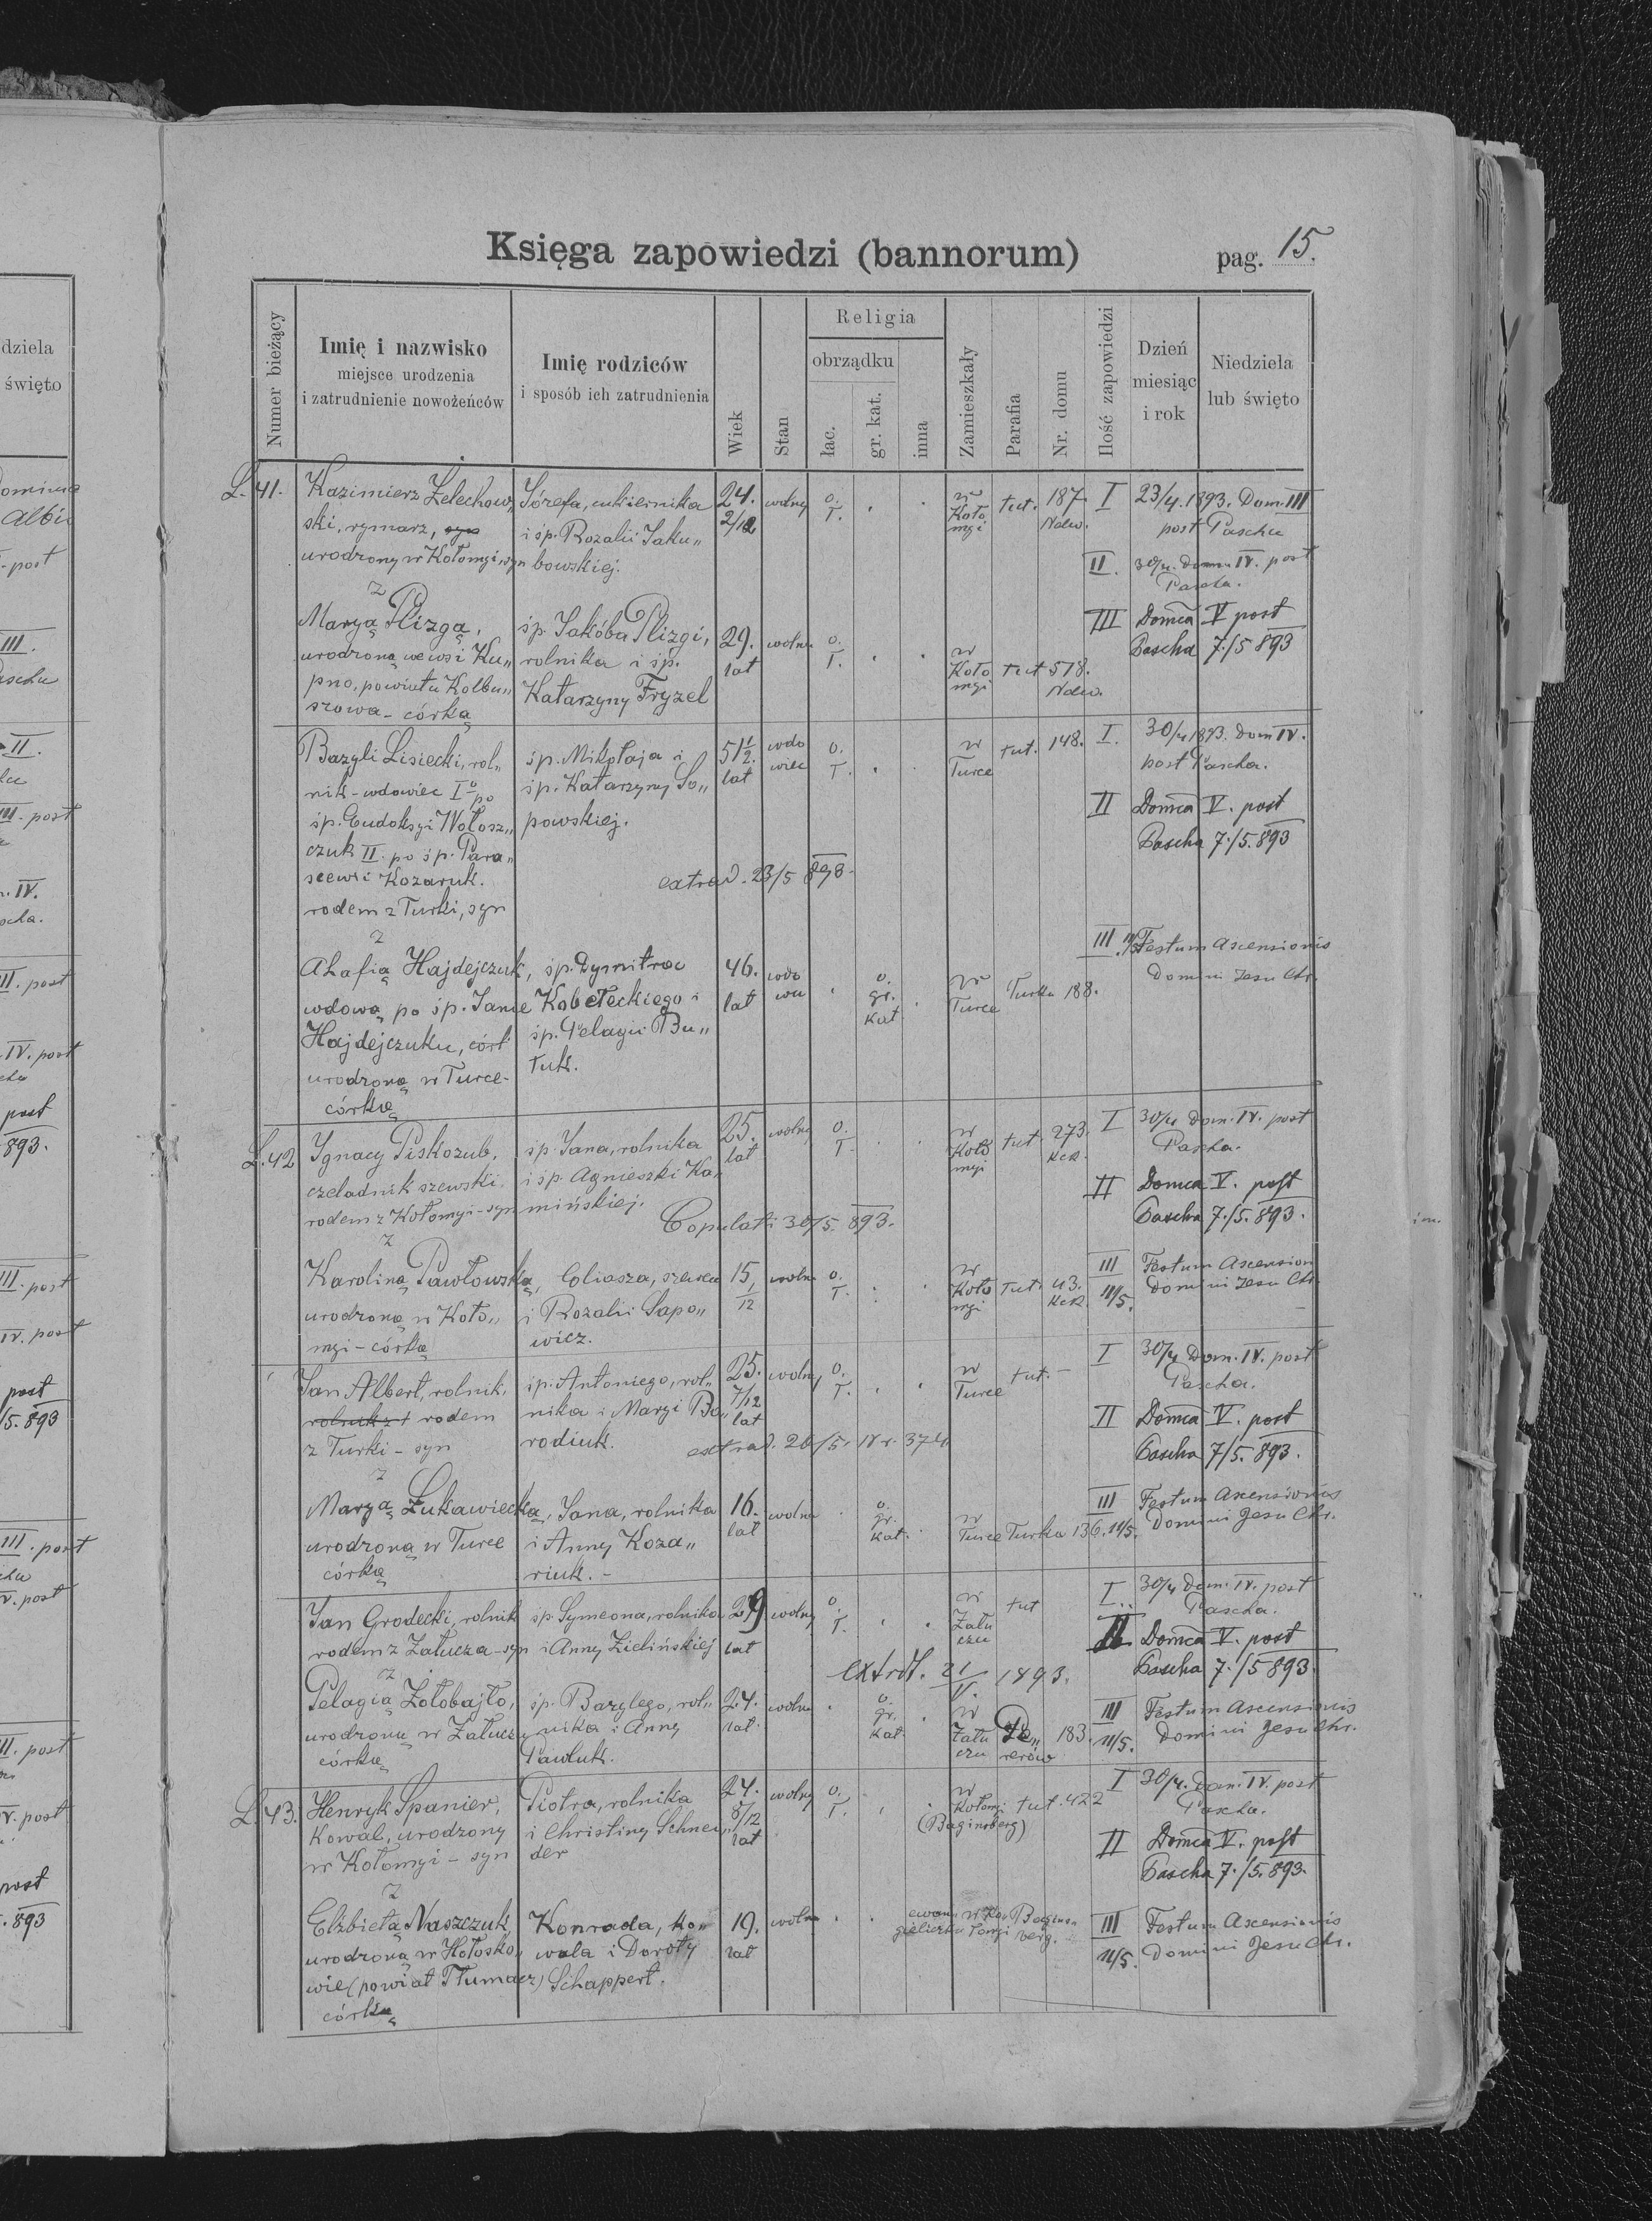 Księga zapowiedzi (bannorum)
pag. 15.
Numer bieżący
Imię i nazwisko
miejsce urodzenia
i zatrudnienie nowożeńców
Imię rodziców
i sposób ich zatrudnienia
Wiek
Stan
Religia
obrządku
łac.
gr. kat.
inna
Zamieszkały
Parafia
Nr. domu
Ilość zapowiedzi
Dzień
miesiąc
i rok
Niedziela
lub święto
L. 41. Kazimierz Żelechow„ Józefa, cukiernika 24. wolny o. w tut. 187. I 23/4.1893. Dom. III
ski, rymarz, i śp. Rozalii Jaku„ 2/12 ł. Koło post Pascha
myi
urodzony w Kołomyi, syn bowskiej. II. 30/4. Domin. IV. post
Pascha.
z
Maryą Plizgą, śp. Jakóba Plizgi, 29. wolna o. III Domca V post
urodzoną we wsi Ku„ rolnika i śp. lat ł. w Pascha 7/5 893
pno, powiatu Kolbu„ Katarzyny Fryzel Koło tut 518.
myi
szowa - córką
Bazyli Lisiecki, rol„ śp. Mikołaja i 51 1/2. wdo o. w tut. 148. I. 30/4 1893. Dom IV.
nik - wdowiec I° po śp. Katarzyny So„ lat wiec ł. Turce post Pascha.
śp. Eudoksyi Wołosz„ powskiej. II Domca V. post
czuk II. po śp. Para„ Pascha 7./5. 893
scewii Kozaruk. extrad. 23/5 898.
rodem z Turki, syn
z III. 11/5 Festum Ascensionis
Ahafią Hajdejczuk, śp. Dymitra 46. wdo o. w Turka 188. Domini Jesu Chr.
wdową po śp. Janie Kobeteckiego i lat wa gr. Turce
Hajdejczuku, śp. Pelagii Bu„ kat
urodzoną w Turce - tuk.
córką
L. 42 Ignacy Piskozub, śp. Jana, rolnika 25. wolny o. w tut. 273. I 30/4 Dom. IV. post
czeladnik szewski i śp. Agnieszki Ka„ lat ł. Koło Pascha.
myi
rodem z Kołomyi - syn mińskiej. II Domca V. post
Copulati 30/5. 893. Pascha 7./5. 893.
z
Karoliną Pawłowską, Eliasza, szewca 15, wolna o. w tut. 43. III Festum Ascension
urodzoną w Koło„ i Rozalii Sapo„ 1/12 ł. Koło 11/5. Domini Jesu Chr.
myi
myi - córką wicz.
Jan Albert, rolnik, śp. Antoniego, rol„ 25. wolny, o. w tut. - I 30/4 Dom. IV. post
rodem nika i Maryi Bo„ 7/12 ł. Turce Pascha.
lat
z Turki - syn rodiuk. II Domca V. post
extrad. 26/5. Nr. 374. Pascha 7/5. 893.
z
Maryą Łukawiecką, Jana, rolnika 16. wolna o. w III Festum Ascensionis
urodzoną w Turce i Anny Koza„ lat gr. Turce Turka 136. 11/5. Domini Jesu Chr.
kat.
córką riuk. -
Jan Grodecki, rolnik śp. Symeona, rolnika 29 wolny o. w tut I. 30/4 Dom. IV. post
rodem z Załucza - syn i Anny Zielińskiej lat ł. Zału Pascha.
czu
II Domca V. post
z extrdt. 21/V. 1893. Pascha 7./5 893.
Pelagią Żołobajło, śp. Bazylego, rol„ 24. wolna o. w III Festum Ascensionis
urodzoną w Załuczu nika i Anny lat. gr. Zału De„ 183. 11/5. Domini Jesu Chr.
kat. czu rerów
córką Pawluk.
L. 43. Henryk Spanier, Piotra, rolnika 24. wolny o. w tut. 422 I 30/4. Dom. IV. post
Kowal, urodzony i Christiny Schnei„ 8/12 ł. Kołomyi Pascha.
lat (Baginsberg)
w Kołomyi - syn der II Domca V. post
Pascha 7./5. 893.
z
Elżbietą Naszczuk, Konrada, ko„ 19. wolna ewan w Ko„ Bagins„ III Festum Ascensionis
urodzoną w Hołosko„ wala i Doroty lat gieliczka łomyi berg. 11/5. Domini Jesu Chr.
wie (powiat Tłumacz) Schappert.
córką